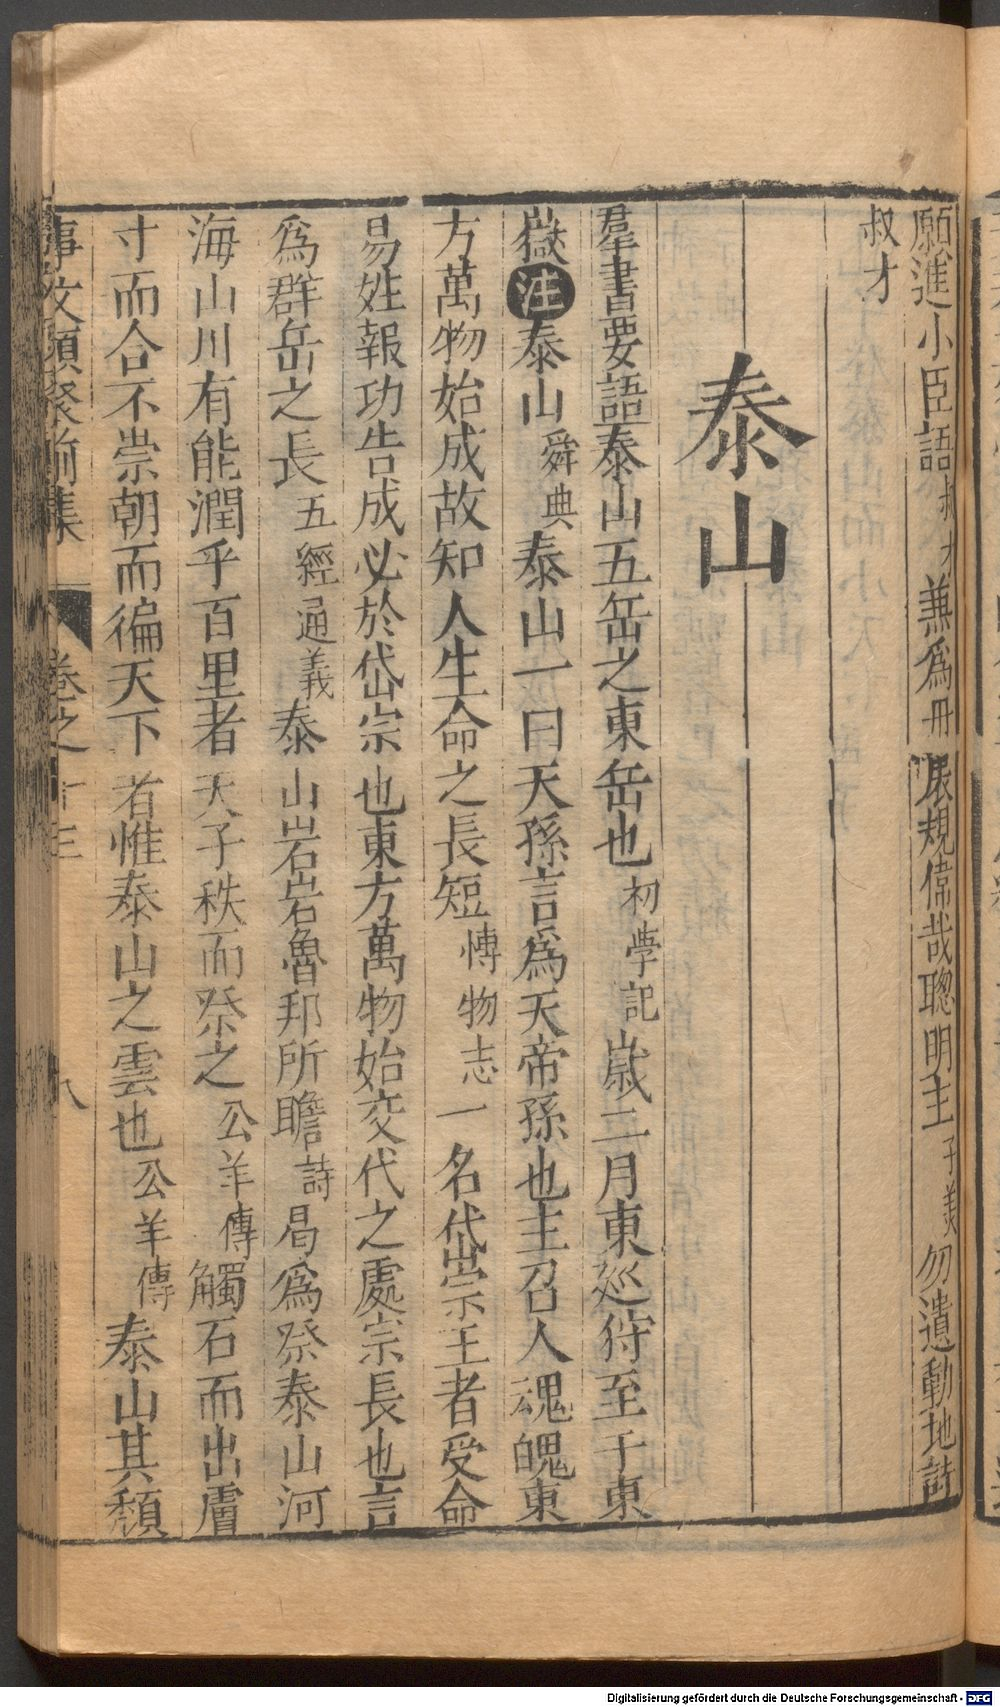 願進小臣語叔才兼爲冊張規偉哉聰明主子美勿遺動地詩
叔才
泰山
羣書要語泰山五岳之東岳也初學記歲二月東廵狩至于東
嶽注泰山舜典泰山一曰天孫言爲天帝孫也主召人魂魄東
方萬物始成故知人生命之長短愽物志一名代崇宗王者受命
易姓報功告成必於岱宗也東方萬物始交代之處宗長也言
爲群岳之長五經通義泰山岩岩魯邦所瞻詩曷爲祭泰山河
海山川有能潤乎百里者天子秩而祭之公羊傳觸石而出膚
寸而合不崇朝而徧天下者惟泰山之雲也公羊傳泰山其頹
事文類聚前集 卷之十三 八
Digitalisierung gefördert durch die Deutsche Forschungsgemeinschaft - DFG